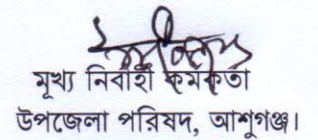 মূখ্য নির্বাহী কর্মকর্তা
উপজেলা পরিষদ, আশুগঞ্জ।